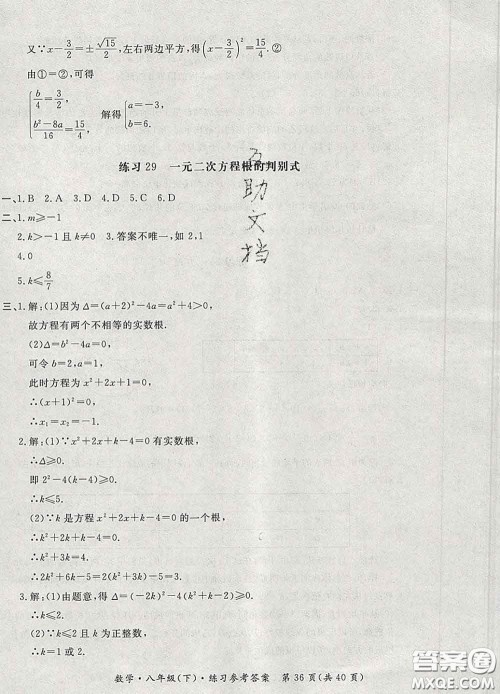 又∵x-3/2=±√15/2, 左右两边平方,得(x-3/2)²=15/4.②
由①=②,可得
{b/4=3/2, (b²-8a)/16=15/4. 解得{a=-3, b=6.
练习 29 一元二次方程根的判别式
一、1. B 2. A 3. D 4. D 5. C 6. D
二、1. m≥-1
2. k>-1 且 k≠0 3. 答案不唯一,如 2.1
4. 0
5. k≤8/7
三、1. 解:(1)因为 Δ=(a+2)²-4a=a²+4>0,
故方程有两个不相等的实数根.
(2)∵Δ=b²-4a=0,
可令 b=2,a=1,
此时方程为 x²+2x+1=0,
∴(x+1)²=0,
∴x₁=x₂=-1.
2. 解:(1)∵x²+2x+k-4=0 有实数根,
∴Δ≥0.
即 2²-4(k-4)≥0.
∴k≤5.
(2)∵k 是方程 x²+2x+k-4=0 的一个根,
∴k²+2k+k-4=0.
∴k²+3k=4.
∴2k²+6k-5=2(k²+3k)-5=3.
3. 解:(1)由题意,得 Δ=(-2k)²-4(k²+k-2)≥0,
∴k≤2.
(2)∵k≤2 且 k 为正整数,
∴k=1 或 k=2.
数学·八年级(下)·练习参考答案 第 36 页(共 40 页)
互助文档
答案圈
MXQE.COM